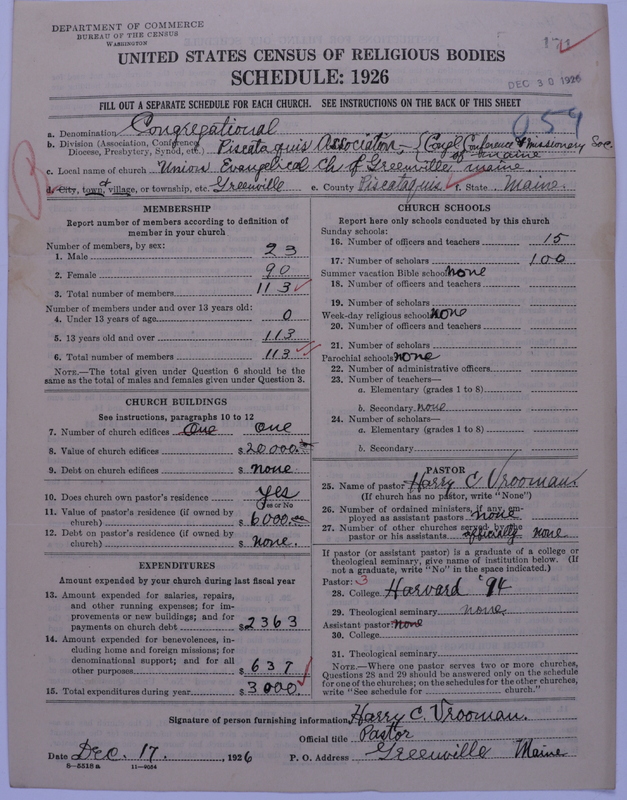 DEPARTMENT OF COMMERCE
BUREAU OF THE CENSUS
WASHINGTON
171
UNITED STATES CENSUS OF RELIGIOUS BODIES
SCHEDULE: 1926
DEC 30 1926
FILL OUT A SEPARATE SCHEDULE FOR EACH CHURCH. SEE INSTRUCTIONS ON THE BACK OF THIS SHEET
059
a. Denomination Congregational
b. Division (Association, Conference, Diocese, Presbytery, Synod, etc.) Piscataquis Association, - {Congl Conference & Missionary Soc. of Maine
c. Local name of church Union Evangelical Ch of Greenville, Maine.
d. City, town, + village, or township, etc. Greenville e. County Piscataquis f. State Maine.
MEMBERSHIP
Report number of members according to definition of
member in your church
Number of members, by sex:
1. Male 23
2. Female 90
3. Total number of members 113
Number of members under and over 13 years old:
4. Under 13 years of age 0
5. 13 years old and over 113
6. Total number of members 113
NOTE.—The total given under Question 6 should be
same as the total of males and females given under Question 3.
CHURCH BUILDINGS
See instructions, paragraphs 10 to 12
7. Number of church edifices One One
8. Value of church edifices $20000.00
9. Debt on church edifices $ none
10. Does church own pastor's residence Yes
Yes or No
11. Value of pastor's residence (if owned by
church) $ 6000.00
12. Debt on pastor's residence (if owned by
church) $ none.
EXPENDITURES
Amount expended by your church during last fiscal year
13. Amount expended for salaries, repairs,
and other running expenses; for im-
provements or new buildings; and for
payments on church debt $2363
14. Amount expended for benevolences, in-
cluding home and foreign missions; for
denominational support; and for all
other purposes $ 637
15. Total expenditures during year $3000.
CHURCH SCHOOLS
Report here only schools conducted by this church
Sunday schools:
16. Number of officers and teachers 15
17. Number of scholars 100
Summer vacation Bible schools: none
18. Number of officers and teachers
19. Number of scholars
Week-day religious schools: none
20. Number of officers and teachers
21. Number of scholars
Parochial schools: none
22. Number of administrative officers
23. Number of teachers—
a. Elementary (grades 1 to 8)
b. Secondary none
24. Number of scholars—
a. Elementary (grades 1 to 8)
b. Secondary
PASTOR
25. Name of pastor Harry C. Vrooman.
(If church has no pastor, write "None")
26. Number of ordained ministers, if any, em-
ployed as assistant pastors none
27. Number of other churches served by the
pastor or his assistants officially none
If pastor (or assistant pastor) is a graduate of a college or
theological seminary, give name of institution below. (If
not a graduate, write "No" in the space indicated.)
Pastor: 3
28. College Harvard '94
29. Theological seminary none.
Assistant pastor: none
30. College
31. Theological seminary
NOTE.—Where one pastor serves two or more churches,
Questions 28 and 29 should be answered only on the schedule
for one of the churches; on the schedules for the other churches,
write "See schedule for church."
Signature of person furnishing information Harry C. Vrooman.
Official title Pastor
Date Dec. 17. , 1926 P. O. Address Greenville Maine
8-5518 a 11-9054